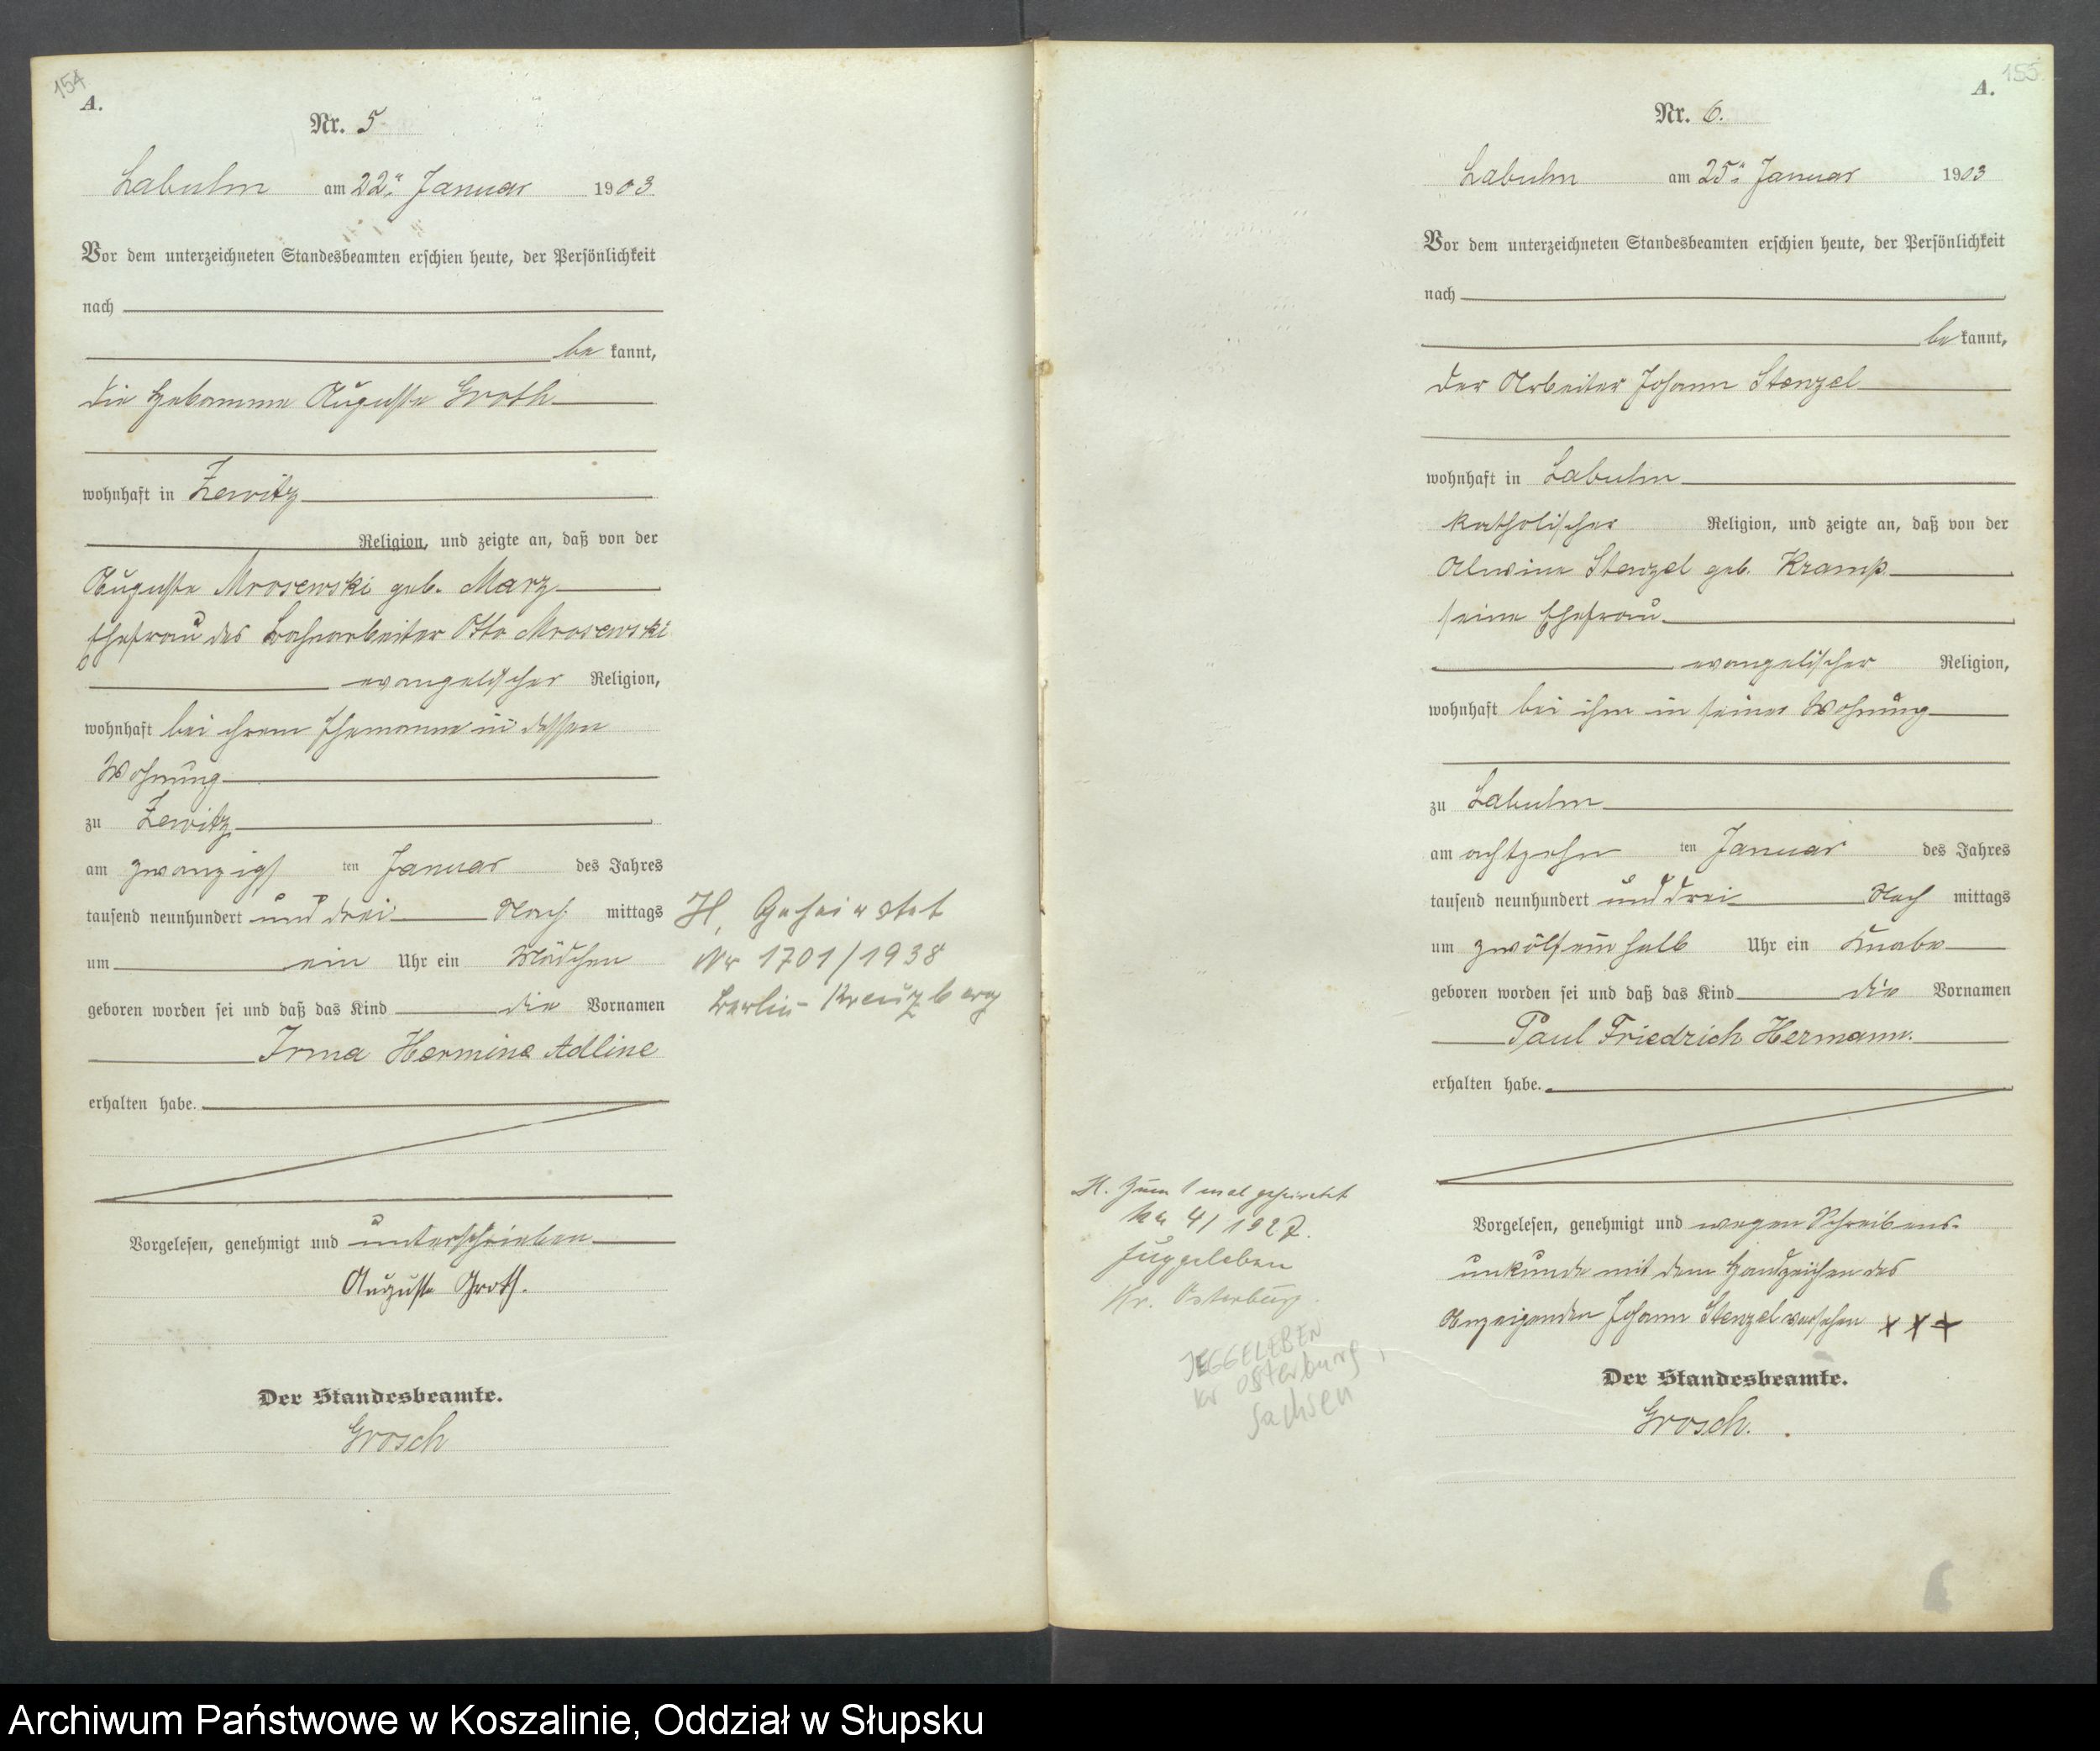 154
A.
Nr. 5
Labuhn am 22ⁿ Januar 1903
Vor dem unterzeichneten Standesbeamten erschien heute, der Persönlichkeit
nach
be kannt,
die Hebamme Auguste Groth
wohnhaft in Zewitz
Religion, und zeigte an, daß von der
Auguste Mrosewski geb. Marz
Ehefrau des Bahnarbeiter Otto Mrosewski
evangelischer Religion,
wohnhaft bei ihrem Ehemanne in dessen
Wohnung
zu Zewitz
am zwanzigs ten Januar des Jahres
tausend neunhundert und drei Nach mittags
um ein Uhr ein Mädchen
geboren worden sei und daß das Kind die Vornamen
Irma Hermine Adline
erhalten habe.
Vorgelesen, genehmigt und unterschrieben
Auguste Groth.
Der Standesbeamte.
Grosch
H. Geheiratet
Nr 1701/1938
Berlin-Kreuzberg
155
A.
Nr. 6.
Labuhn am 25ⁿ Januar 1903
Vor dem unterzeichneten Standesbeamten erschien heute, der Persönlichkeit
nach
be kannt,
der Arbeiter Johann Stenzel
wohnhaft in Labuhn
katholischer Religion, und zeigte an, daß von der
Alwine Stenzel geb. Kramp
seine Ehefrau
evangelischer Religion,
wohnhaft bei ihm in seiner Wohnung
zu Labuhn
am achtzehn ten Januar des Jahres
tausend neunhundert und drei Nach mittags
um zwölfeinhalb Uhr ein Knabe
geboren worden sei und daß das Kind die Vornamen
Paul Friedrich Hermann.
erhalten habe.
Vorgelesen, genehmigt und wegen Schreibens-
unkunde mit dem Handzeichen des
Anzeigenden Johann Stenzel versehen x x x
Der Standesbeamte.
Grosch.
H. Zum 1 mal geheiratet
Nr 4/1927.
Jeggeleben
Kr. Osterburg.
JEGGELEBEN
kr Osterburg,
Sachsen
6
Archiwum Państwowe w Koszalinie, Oddział w Słupsku